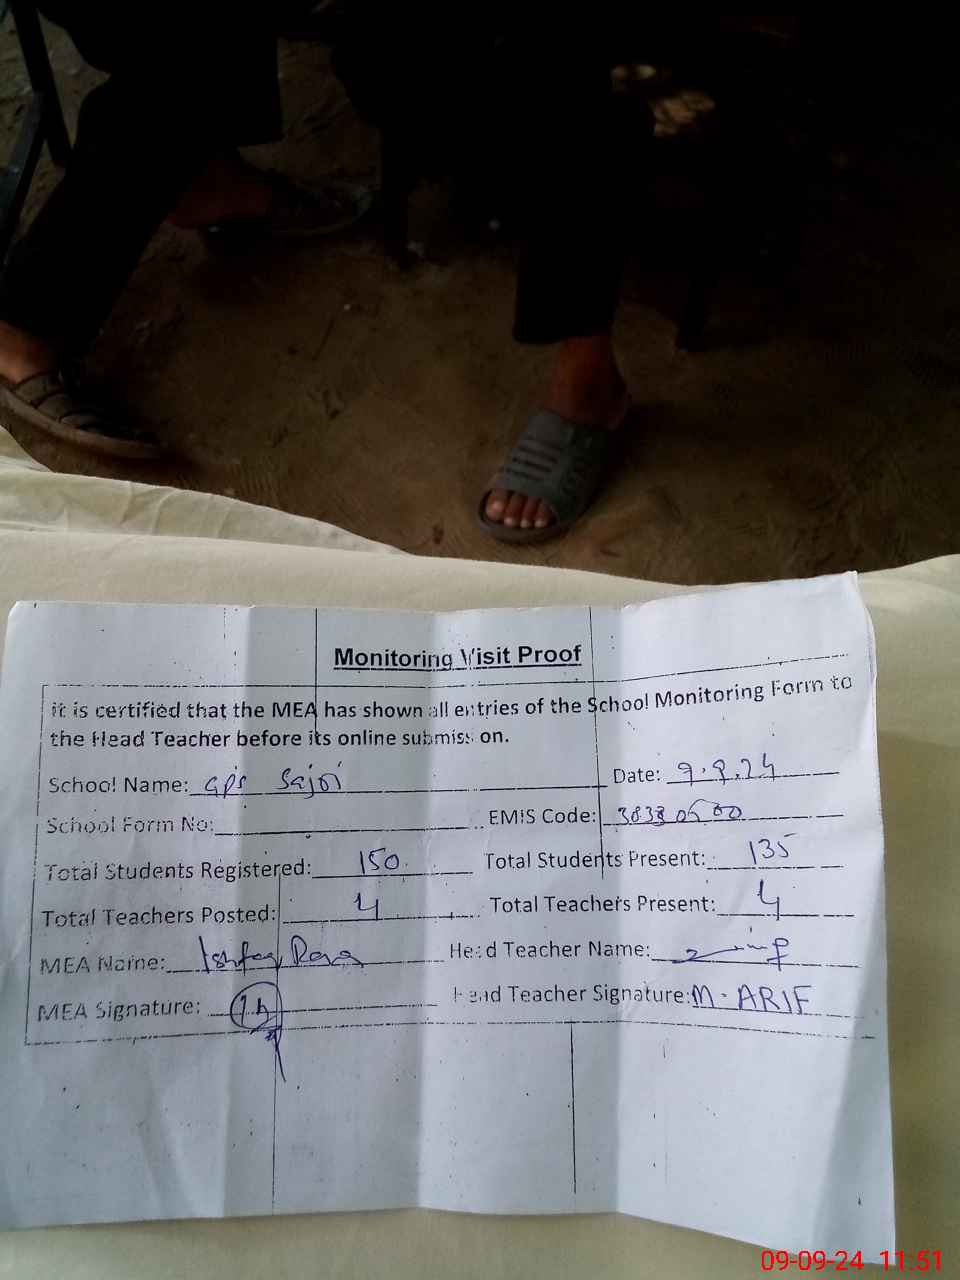 Monitoring Visit Proof
it is certified that the MEA has shown all entries of the School Monitoring Form to
the Head Teacher before its online submission.
School Name: GPS Sajoi Date: 9.9.24
School Form No: EMIS Code: 38330500
Total Students Registered: 150 Total Students Present: 135
Total Teachers Posted: 4 Total Teachers Present: 4
MEA Name: Ishfaq Head Teacher Name:
MEA Signature: Head Teacher Signature: M. ARIF
09-09-24 11:51